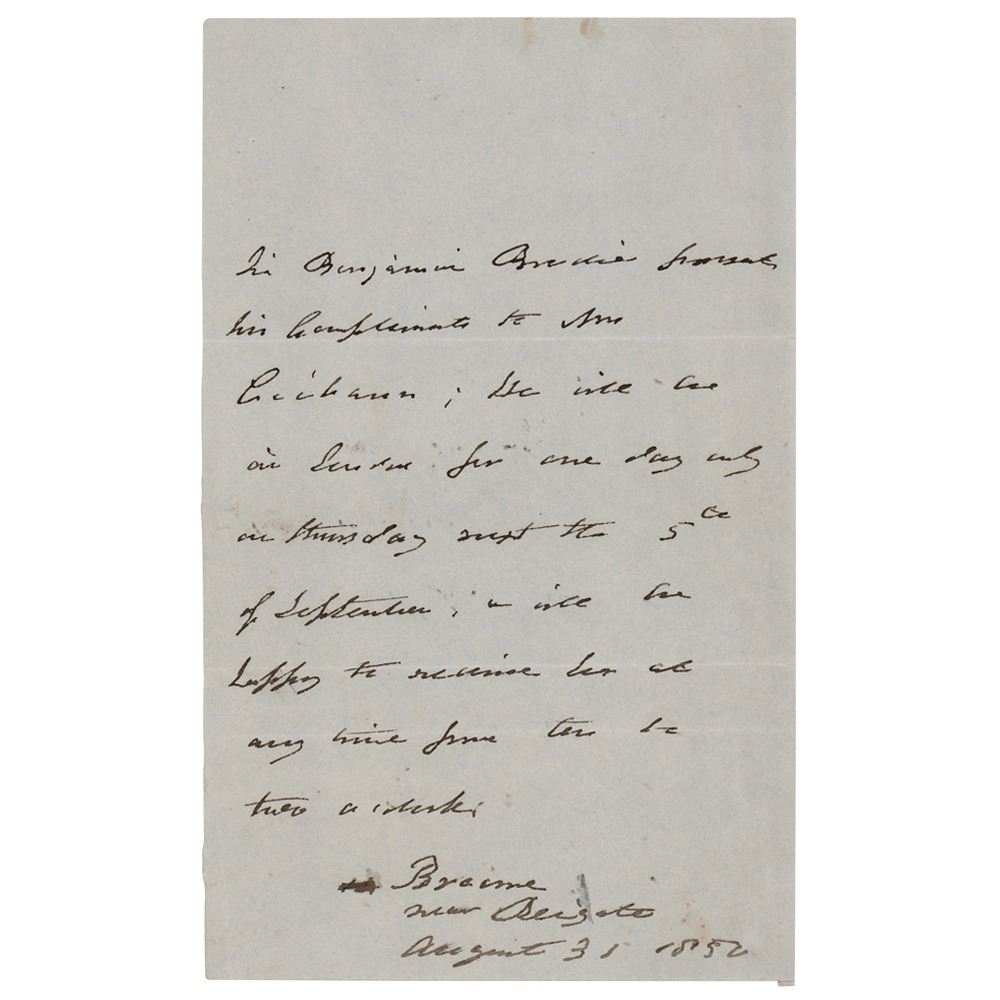 Sir Benjamin Brodie presents
his Compliments to Mrs
; He will be
in London for one day only
on Thursday next the 5th
of September, & will be
happy to receive her at
any time from ten to
two o'clock.
Broome
near Reigate
August 31 1850